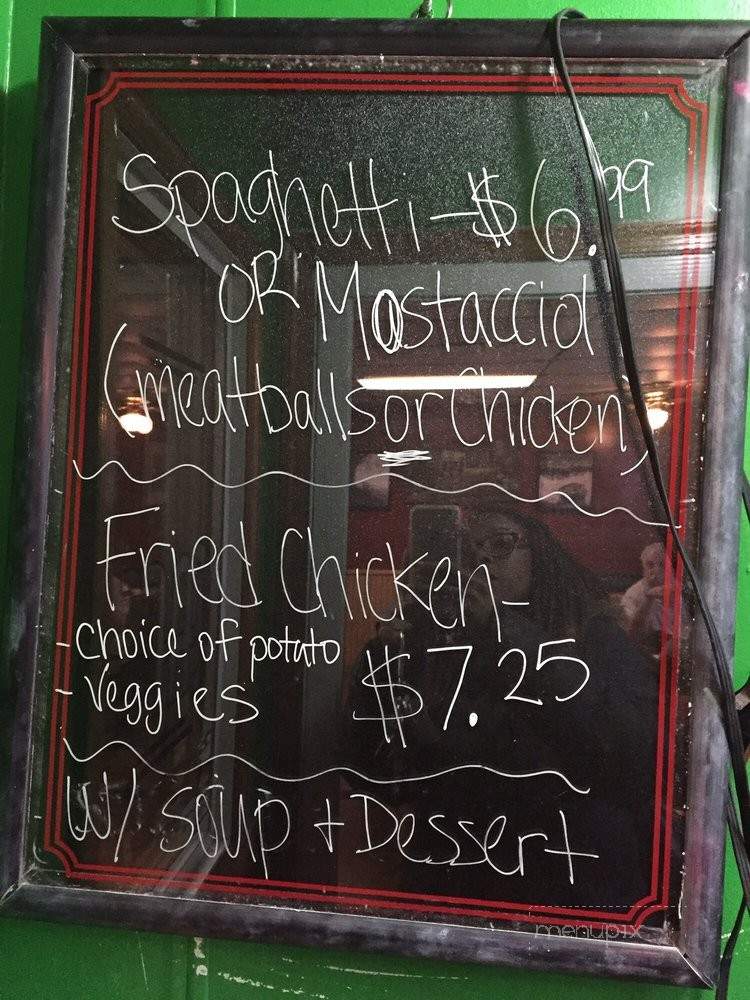 Spaghetti - $6.99
OR Mostacciol
(meatballs or Chicken)
Fried Chicken -
- Choice of potato
- Veggies
$7.25
w/ Soup + Dessert
menupix